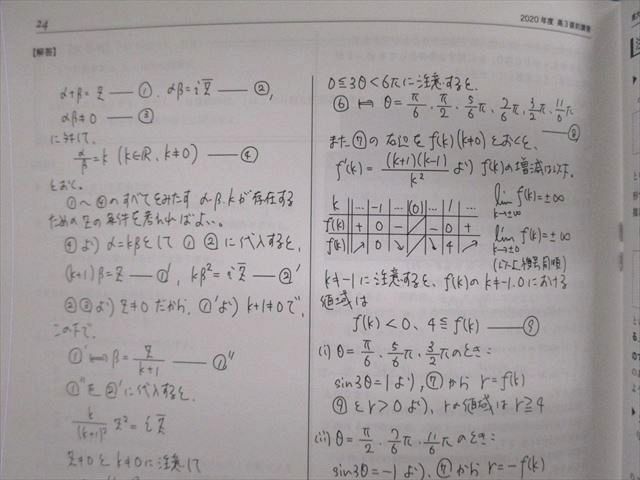 24
2020年度 高3
【解答】
α+β=z — ①, αβ=i z̄ — ②,
αβ≠0 — ③
に対して,
α/β=k (k∈ℝ, k≠0) — ④
とおく。
①〜④のすべてをみたす α, β, kが存在する
ためのzの条件を考えればよい。
④より α=kβとして ① ② に代入すると,
(k+1)β=z — ①′, kβ²=i z̄ — ②′
②③より z≠0 だから, ①′より k+1≠0で,
この下で,
①′⟺β=z/(k+1) — ①″
①″を②′に代入すると,
k/(k+1)² z²=i z̄
z≠0とk≠0に注意して
0≦3θ<6πに注意すると,
⑥ ⟺ θ=π/6, π/2, 5/6π, 7/6π, 3/2π, 11/6π — ⑧
また⑦の右辺を f(k) (k≠0)とおくと,
f′(k)=(k+1)(k-1)/k² より f(k)の増減は以下.
k … -1 … (0) … 1 …
f′(k) + 0 - - 0 +
f(k) ↗ 0 ↘ ↘ 4 ↗
lim k→±∞ f(k)=±∞
lim k→±0 f(k)=±∞
(以上, 複号同順)
k≠-1に注意すると, f(k)のk≠-1, 0における
値域は
f(k)<0, 4≦f(k) — ⑨
(i) θ=π/6, 5/6π, 3/2πのとき:
sin3θ=1より, ⑦から r=f(k)
⑨とr>0より, rの値域は r≧4
(ii) θ=π/2, 7/6π, 11/6πのとき:
sin3θ=-1より, ⑦から r=-f(k)